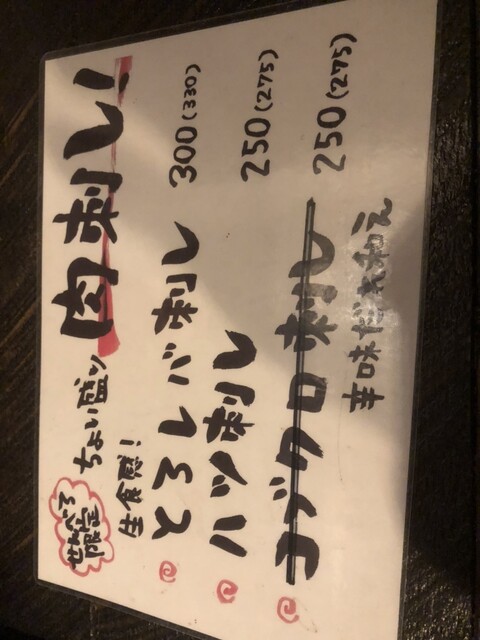 せんべろ
限定
ちょい盛り 肉刺し！
生食感！
とろレバ刺し 300(330)
ハツ刺し 250(275)
コブクロ刺し 250(275)
辛味だれ和え